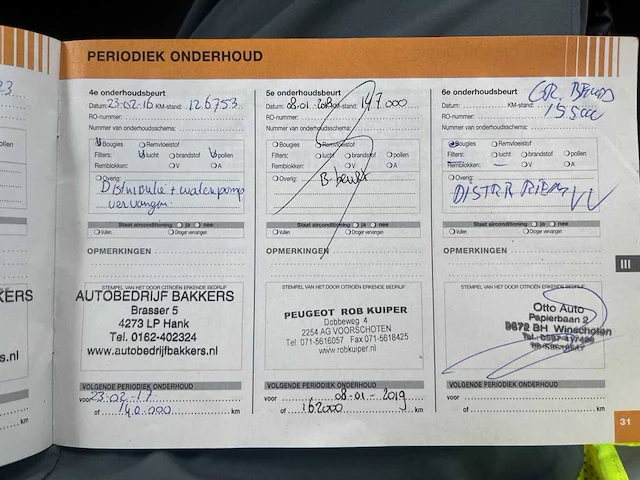 PERIODIEK ONDERHOUD
4e onderhoudsbeurt
Datum: 23-02-16 KM-stand: 126753
RO-nummer:
Nummer van onderhoudsschema:
Bougies Remvloeistof
Filters: lucht brandstof pollen
Remblokken: V A
Overig: Distributie + waterpomp
vervangen.
Staat airconditioning ja nee
Vullen Droger vervangen
OPMERKINGEN
STEMPEL VAN HET DOOR CITROËN ERKENDE BEDRIJF
AUTOBEDRIJF BAKKERS
Brasser 5
4273 LP Hank
Tel. 0162-402324
www.autobedrijfbakkers.nl
VOLGENDE PERIODIEK ONDERHOUD
voor 23-02-17
of 140.000 km
5e onderhoudsbeurt
Datum: 08.01-2018 KM-stand: 147.000
RO-nummer:
Nummer van onderhoudsschema:
Bougies Remvloeistof
Filters: lucht brandstof pollen
Remblokken: V A
Overig: B-beurt
Staat airconditioning ja nee
Vullen Droger vervangen
OPMERKINGEN
STEMPEL VAN HET DOOR CITROËN ERKENDE BEDRIJF
PEUGEOT ROB KUIPER
Dobbeweg 4
2254 AG VOORSCHOTEN
Tel. 071-5616057 Fax 071-5618425
www.robkuiper.nl
VOLGENDE PERIODIEK ONDERHOUD
voor 08-01-2019
of 162000 km
6e onderhoudsbeurt
GR. BEURT
Datum: KM-stand:
RO-nummer:
Nummer van onderhoudsschema:
Bougies Remvloeistof
Filters: lucht brandstof pollen
Remblokken: V A
Overig:
DISTR RIEM VV
Staat airconditioning ja nee
Vullen Droger vervangen
OPMERKINGEN
STEMPEL VAN HET DOOR CITROËN ERKENDE BEDRIJF
Otto Auto
Papierbaan 2
9672 BH Winschoten
VOLGENDE PERIODIEK ONDERHOUD
voor
of km
III
31
KERS
s.nl